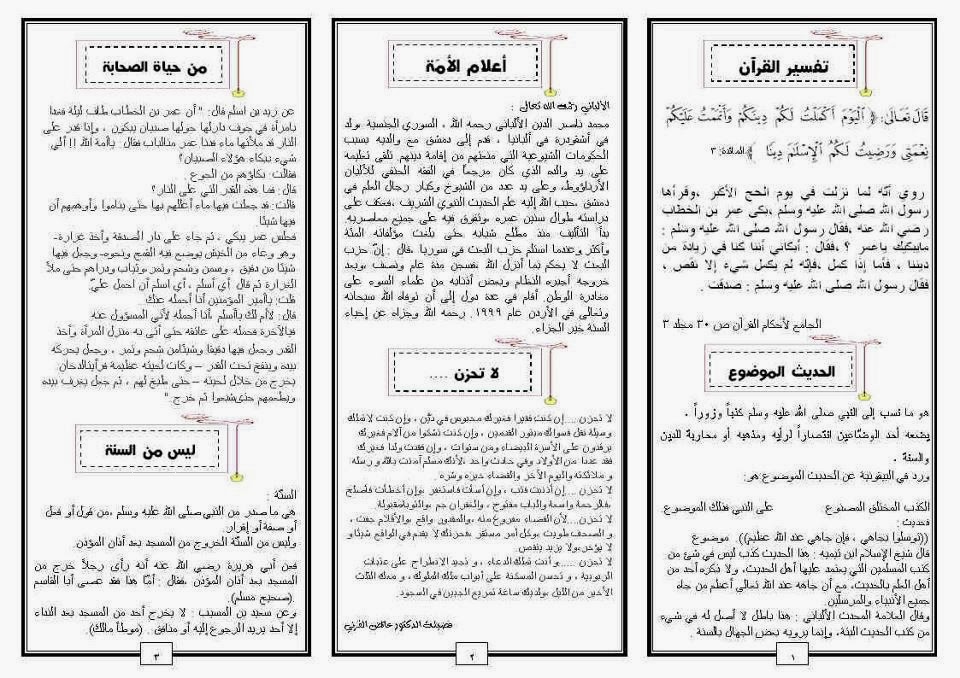 تفسير القرآن
قَالَ تَعَالَى: ﴿ الْيَوْمَ أَكْمَلْتُ لَكُمْ دِينَكُمْ وَأَتْمَمْتُ عَلَيْكُمْ
نِعْمَتِي وَرَضِيتُ لَكُمُ الْإِسْلَامَ دِينًا ﴾ المائدة: ٣
روي أنّه لما نزلت في يوم الحج الأكبر ،وقرأها
رسول الله صلى الله عليه وسلم ،بكى عمر بن الخطاب
رضي الله عنه ،فقال رسول الله صلى الله عليه وسلم :
مايبكيك ياعمر ؟ ،فقال : أبكاني أننا كنا في زيادة من
ديننا ، فأما إذا كمل ،فإنّه لم يكمل شيء إلا نقص ،
فقال رسول الله صلى الله عليه وسلم : صدقت .
الجامع لأحكام القرآن ص ٣٠ مجلد ٣
الحديث الموضوع
هو ما نسب إلى النبي صلى الله عليه وسلم كذباً وزوراً ،
يضعه أحد الوضّاعين انتصاراً لرأيه ومذهبه أو محاربة للدين
والسنة .
ورد في البيقونية عن الحديث الموضوع هو:
الكذب المختلق المصنوع على النبي فذلك الموضوع.
فحديث :
((توسلوا بجاهي ، فإن جاهي عند الله عظيم)). موضوع
قال شيخ الإسلام ابن تيميه : هذا الحديث كذب ليس في شيء من
كتب المسلمين التي يعتمد عليها أهل الحديث، ولا ذكره أحد من
أهل العلم بالحديث، مع أن جاهه عند الله تعالى أعظم من جاه
جميع الأنبياء والمرسلين.
وقال العلامة المحدث الألباني : هذا باطل لا أصل له في شيء
من كتب الحديث البتة، وإنما يرويه بعض الجهال بالسنة .
١
أعلام الأمّة
الألباني رحمه الله تعالى :
محمد ناصر الدين الألباني رحمه الله ، السوري الجنسية ،ولد
في أشقودرة في ألبانيا ، قدم إلى دمشق مع والديه بسبب
الحكومات الشيوعية التي منعتهم من إقامة دينهم. تلقى تعليمه
على يد والده الذي كان مرجعاً في الفقه الحنفي للألبان
الأرناؤوط، وعلى يد عدد من الشيوخ وكبار رجال العلم في
دمشق ،حبب الله إليه علم الحديث النبوي الشريف ،فعكف على
دراسته طوال ستين عمره ،وتفوق فيه على جميع معاصريه.
بدأ التأليف منذ مطلع شبابه حتى بلغت مؤلفاته المئة
وأكثر وعندما استلم حزب البعث في سوريا ،قال : إنّ حزب
البعث لا يحكم بما أنزل الله ،فسجن مدة عام ونصف ،وبعد
خروجه أجبره النظام وبعض أذنابه من علماء السوء على
مغادرة الوطن. أقام في عدة دول إلى أن توفاه الله سبحانه
وتعالى في الأردن عام ١٩٩٩. رحمه الله وجزاه عن إحياء
السنة خير الجزاء.
لا تحزن ....
لا تحزن ....إن كنت فقيرا فغيرك محبوس في دَيْن ، وإن كنت لا تملك
وسيلة نقل فسواك مبتور القدمين ، وإن كنت تشكو من آلام فغيرك
يرقدون على الأسرة البيضاء ومن سنوات ، وإن فقدت ولدا فغيرك
فقد عددا من الأولاد وفي حادث واحد ،لأنك مسلم آمنت بالله و رسله
و ملائكته واليوم الآخر والقضاء خيره وشره .
لا تحزن ....إن أذنبت فتب ، وإن أسأت فاستغفر ،وإن أخطأت فأصلح
،فالرحمة واسعة والباب مفتوح ، والغفران جم ،والتوبة مقبولة.
لا تحزن....لأن القضاء مفروغ منه ،والمقدور واقع ،والأقلام جفت ،
و الصحف طويت ،وكل أمر مستقر ،فحزنك لا يقدم في الواقع شيئا و
لا يؤخر ،ولا يزيد ينقص.
لا تحزن ....و أنت تملك الدعاء ، و تجيد الانطراح على عتبات
الربوبية ، و تحسن المسكنة على أبواب ملك الملوك ، و معك الثلث
الأخير من الليل ،ولديك ساعة تمريغ الجبين في السجود.
فضيلة الدكتور عائض القرني
٢
من حياة الصحابة
عن زيد بن اسلم قال: " أن عمر بن الخطاب طاف ليلة فإذا
بامرأة في جوف دار لها حولها صبيان يبكون ، وإذا قدر على
النار قد ملأتها ماء فدنا عمر من الباب فقال: ياأمة الله !! أي
شيء بكاء هؤلاء الصبيان؟
فقالت: بكاؤهم من الجوع .
قال: فما هذه القدر التي على النار؟
قالت: قد جعلت فيها ماء أعللهم بها حتى يناموا وأوهمهم أن
فيها شيئا.
فجلس عمر يبكي ، ثم جاء على دار الصدقة وأخذ غرارة-
وهو وعاء من الخيش يوضع فيه القمح ونحوه- وجعل فيها
شيئا من دقيق ، وسمن وشحم وتمر ،وثياب ودراهم حتى ملأ
الغرارة ثم قال: أي أسلم ، أي اسلم أن احمل عليّ
قلت: ياأمير المؤمنين أنا أحمله عنك.
قال: لاأم لك ياأسلم ،أنا أحمله لأني المسؤول عنه
في الآخرة فحمله على عاتقه حتى أتى به منزل المرأة وأخذ
القدر وجعل فيها دقيقا وشيئا من شحم وتمر ، وجعل يحركه
بيده وينفخ تحت القدر – وكانت لحيته عظيمة فرأيت الدخان
يخرج من خلال لحيته – حتى طبخ لهم ، ثم جعل يغرف بيده
ويطعمهم حتى شبعوا ثم خرج. "
ليس من السنة
السنّة :
هي ما صدر من النبي صلى الله عليه وسلم ،من قول أو فعل
أو صفة أو إقرار.
وليس من السنّة الخروج من المسجد بعد أذان المؤذن.
فعن أبي هريرة رضي الله عنه أنه رأى رجلاً خرج من
المسجد بعد أذان المؤذن ،فقال : أمّا هذا فقد عصى أبا القاسم
.(صحيح مسلم).
وعن سعيد بن المسيب : لا يخرج أحد من المسجد بعد النداء
إلا أحد يريد الرجوع إليه أو منافق . (موطأ مالك).
٣